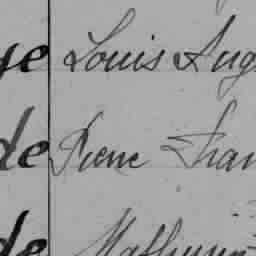 ye Louis Aug
de Pierre Fran
de Mathurin